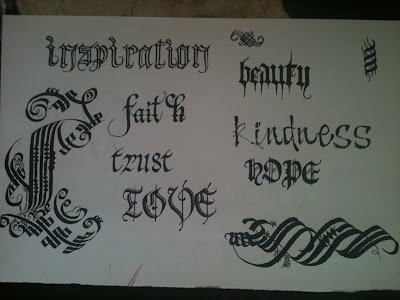 inspiration
beauty
faith
kindness
trust
HOPE
LOVE